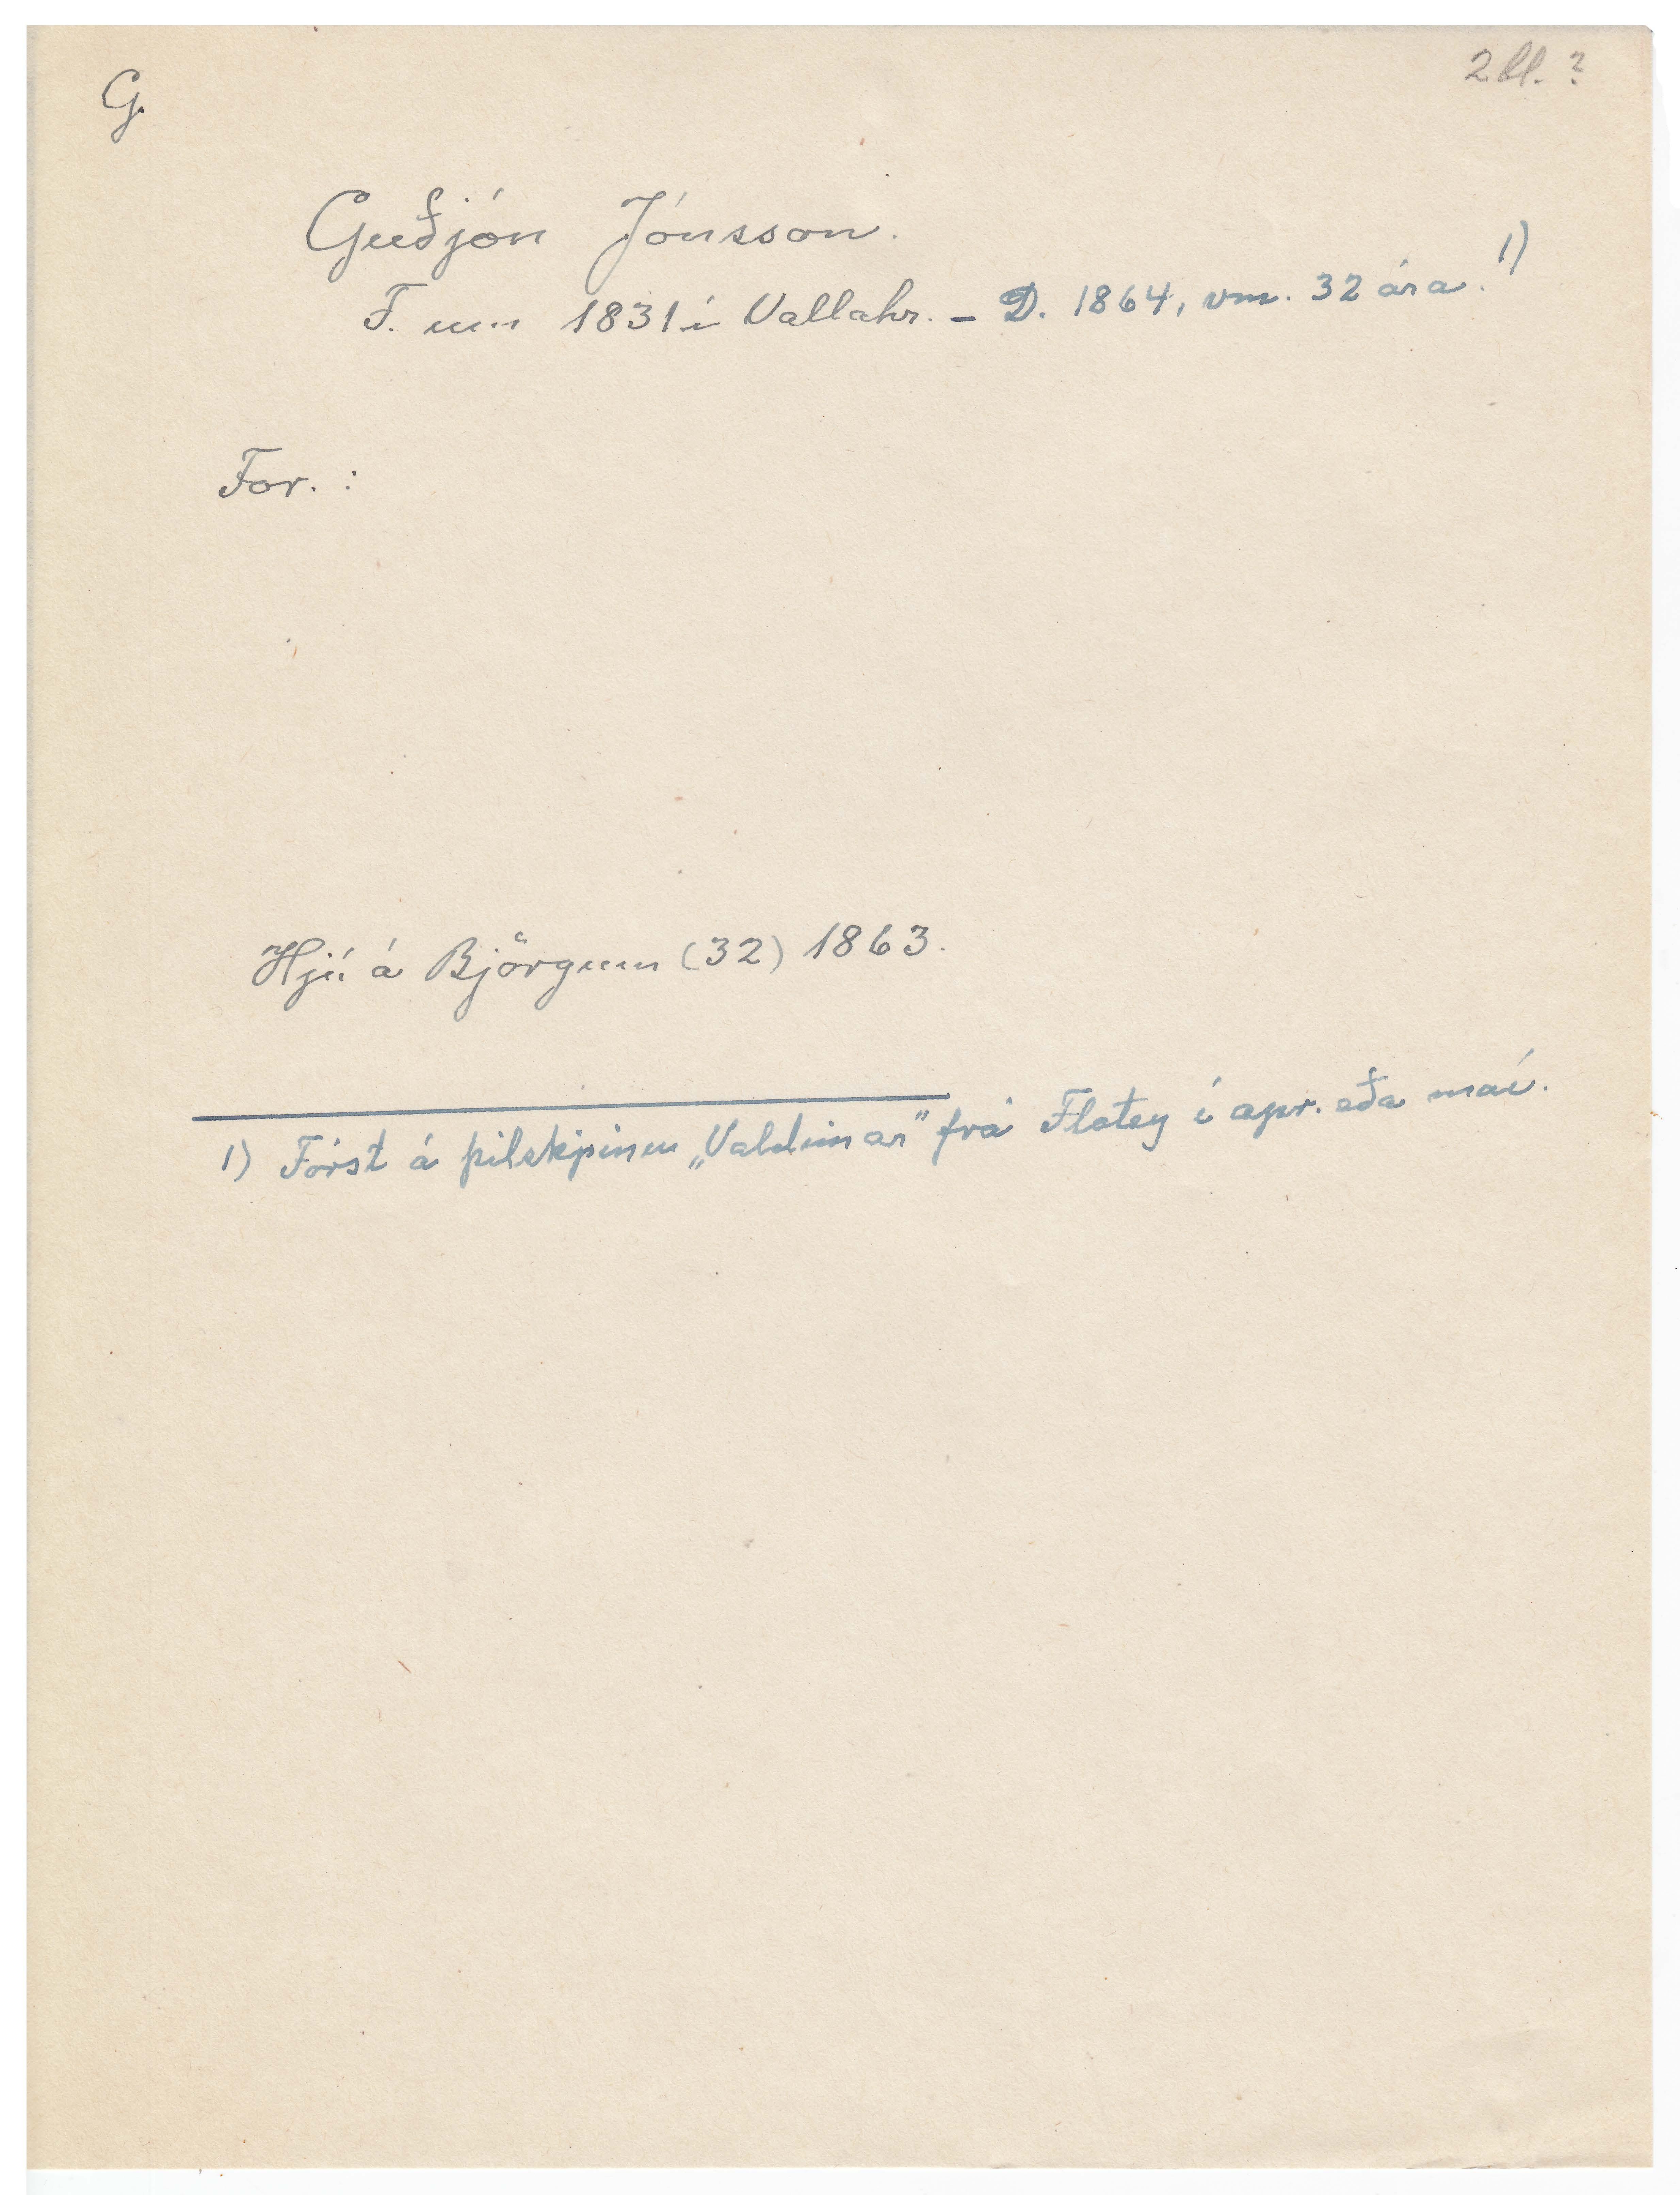 G.
2 bl. ?
Guðjón Jónsson.
F. um 1831 í Vallahr. - D. 1864, vm. 32 ára. 1)
For. :
Hjú á Björgum (32) 1863.
1) Fórst á þilskipinu „Valdimar" frá Flatey í apr. eða maí.